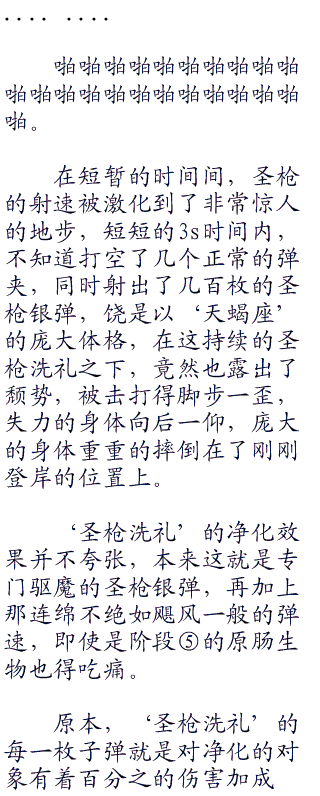 .... ....
啪啪啪啪啪啪啪啪啪啪
啪啪啪啪啪啪啪啪啪啪啪啪
啪。
在短暂的时间间，圣枪
的射速被激化到了非常惊人
的地步，短短的3s时间内，
不知道打空了几个正常的弹
夹，同时射出了几百枚的圣
枪银弹，饶是以‘天蝎座’
的庞大体格，在这持续的圣
枪洗礼之下，竟然也露出了
颓势，被击打得脚步一歪，
失力的身体向后一仰，庞大
的身体重重的摔倒在了刚刚
登岸的位置上。
‘圣枪洗礼’的净化效
果并不夸张，本来这就是专
门驱魔的圣枪银弹，再加上
那连绵不绝如飓风一般的弹
速，即使是阶段⑤的原肠生
物也得吃痛。
原本，‘圣枪洗礼’的
每一枚子弹就是对净化的对
象有着百分之的伤害加成